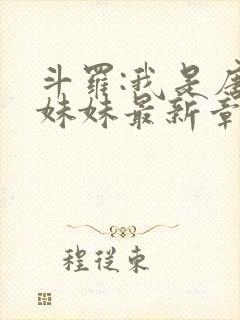 斗罗:我是唐
妹妹最新章
程従東